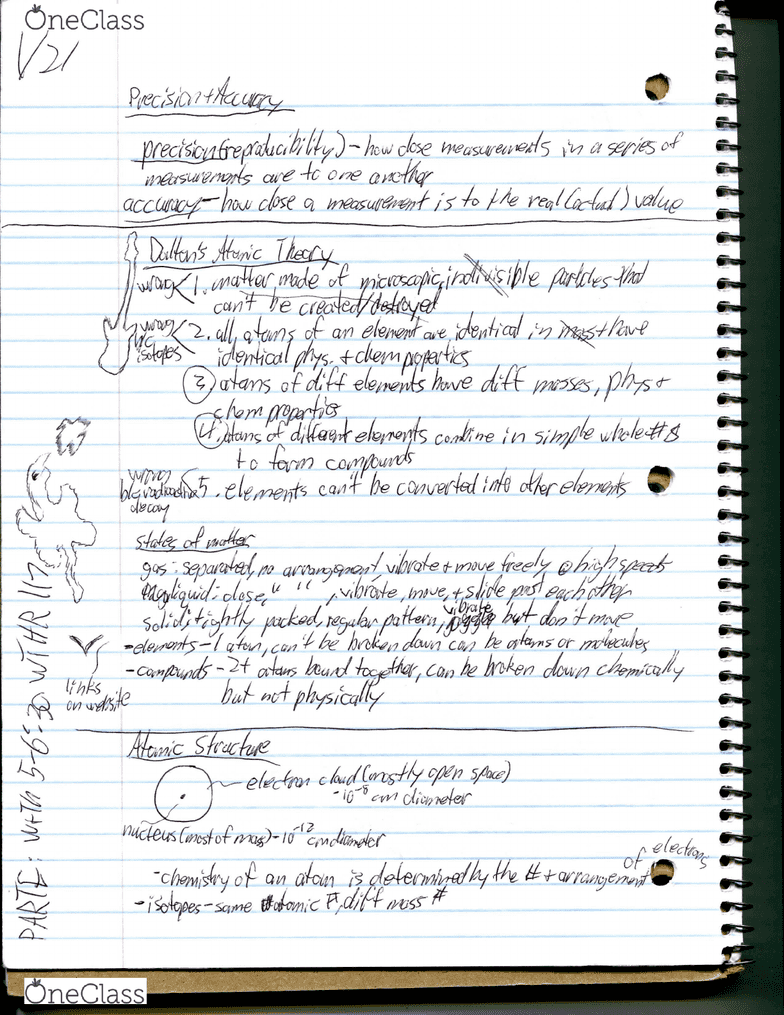 OneClass
1/21
Precision + Accuracy
precision (reproducibility) - how close measurements in a series of
measurements are to one another
accuracy - how close a measurement is to the real (actual) value
Dalton's Atomic Theory
wrong < 1. matter made of microscopic, indivisible particles that
can't be created/destroyed
wrong b/c isotopes < 2. all atoms of an element are identical in mass + have
identical phys. + chem properties
3. atoms of diff elements have diff masses, phys +
chem properties
4. atoms of different elements combine in simple whole #s
to form compounds
wrong b/c radioactive decay < 5. elements can't be converted into other elements
states of matter
gas: separated, no arrangement, vibrate + move freely @ high speeds
liquid: close, " " , vibrate, move, + slide past each other
solid: tightly packed, regular pattern, vibrate but don't move
- elements - 1 atom, can't be broken down can be atoms or molecules
- compounds - 2+ atoms bound together, can be broken down chemically
but not physically
links
on website
PARTE: W+Th 5-6:30 WTHR 117
Atomic Structure
electron cloud (mostly open space)
-10⁻⁸ cm diameter
nucleus (most of mass) - 10⁻¹² cm diameter
- chemistry of an atom is determined by the # + arrangement of electrons
- isotopes - same atomic #, diff mass #
OneClass